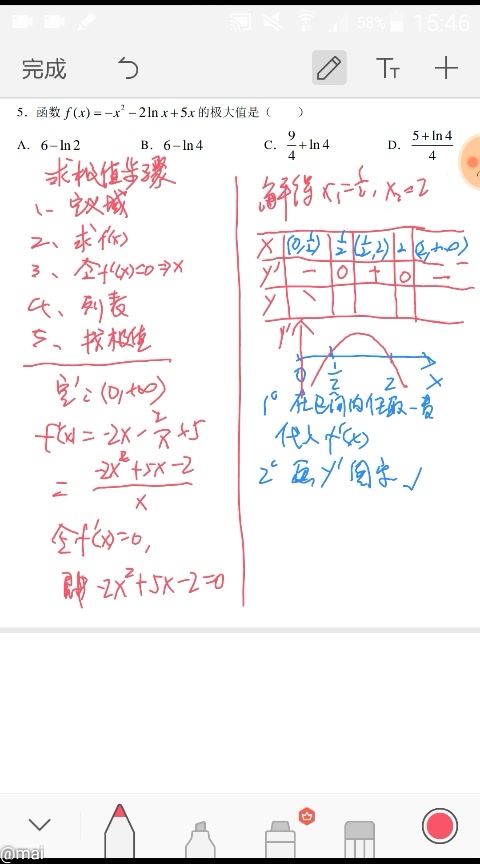 58% 15:46
完成
TT
5．函数 f(x)=-x²-2ln x+5x 的极大值是（　　）
A．6-ln2 B．6-ln4 C．9/4+ln4 D．(5+ln4)/4
求极值步骤
1、定义域
2、求f'(x)
3、令f'(x)=0⇒x
4、列表
5、找极值
定：(0,+∞)
f'(x)=-2x-2/x+5
=(-2x²+5x-2)/x
令f'(x)=0,
即-2x²+5x-2=0
解得 x₁=1/2, x₂=2
x (0,1/2) 1/2 (1/2,2) 2 (2,+∞)
y' − 0 + 0 −
y ↘
y'
0 1/2 2 x
1° 在区间内任取一数
代入f'(x)
2° 画y'图象 ✓
@mai